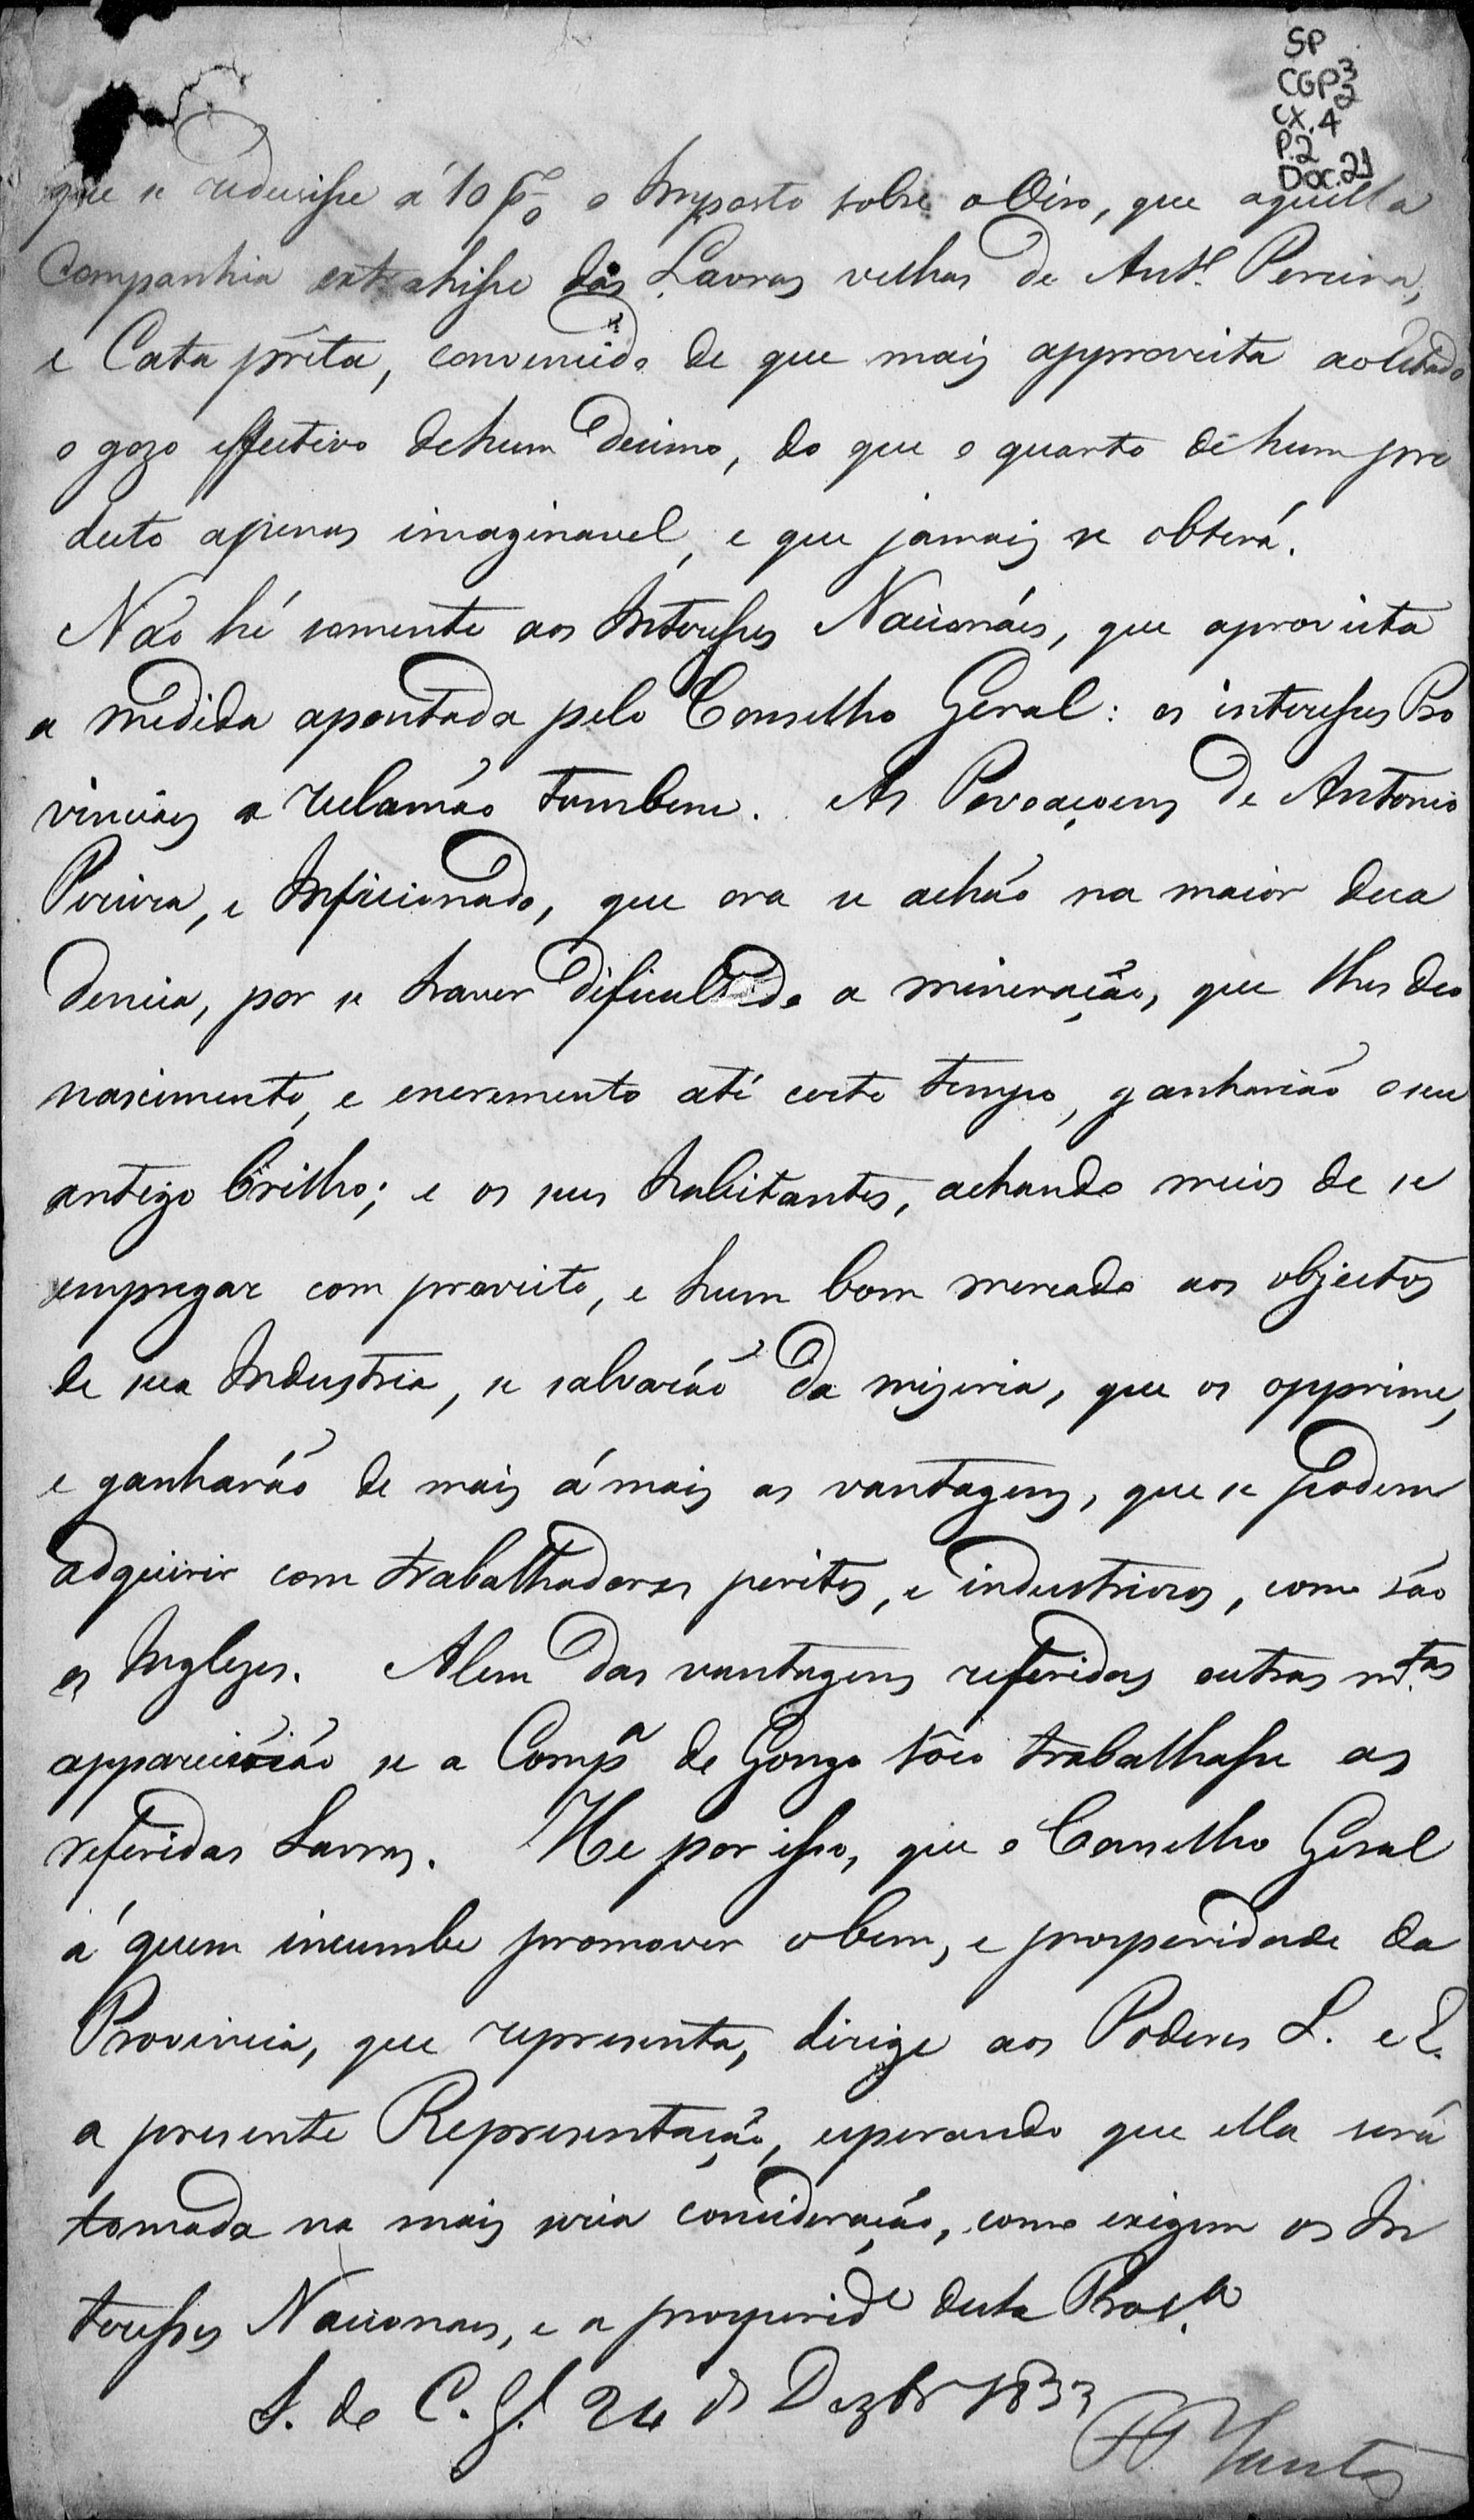 SP
CGP3
2
CX. 4
P.2
Doc. 21
que se redusisse á 10 p% o Imposto sobre o Oiro, que aquella
Companhia extrahisse das Lavras velhas de Antº Pereira,
e Cata prêta, convencido de que mais approveita ao Estado
o gozo effectivo de hum decimo, do que o quarto de hum pro
ducto apenas imaginavel, e que jamais se obterá.
Não hé somente aos Interesses Nacionáes, que aproveita
a medida apontada pelo Conselho Geral: os interesses Pro
vinciaes a reclamão tambem. As Povoaçoens de Antonio
Pereira, e Inficionado, que ora se achão na maior deca
dencia, por se haver dificultado a mineração, que lhes deo
nascimento, e encremento até certo tempo, ganharião o seu
antigo brilho; e os seus habitantes, achando meios de se
empregar com proveito, e hum bom mercado aos objectos
de sua Industria, se salvaráõ da mizeria, que os opprime,
e ganharáõ de mais á mais as vantagens, que se podem
adquirir com trabalhadores peritos, e industriozos, como são
os Inglezes. Alem das vantagens referidas outras m.tas
appareceráõ se a Compª de Gongo sôco trabalhasse as
referidas Lavras. He por isso, que o Conselho Geral
á quem incumbe promover o bem, e prosperidade da
Provincia, que representa, dirige aos Poderes L. e E.
a presente Representação, esperando que ella será
tomada na mais seria consideração, como exigem os In
teresses Nacionaes, e a prosperid.e desta Prov.ca
S. do C. G.l 24 de Dezbr 1833
Santos